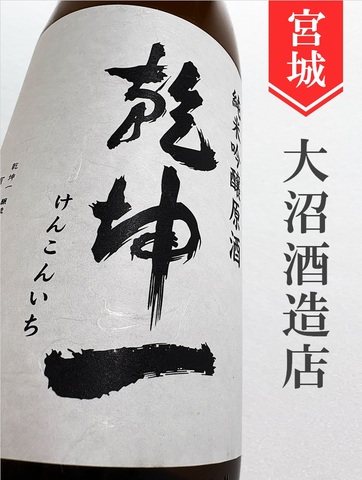 宮城
大沼酒造店
純米吟醸原酒
乾坤一
けんこんいち
乾坤一